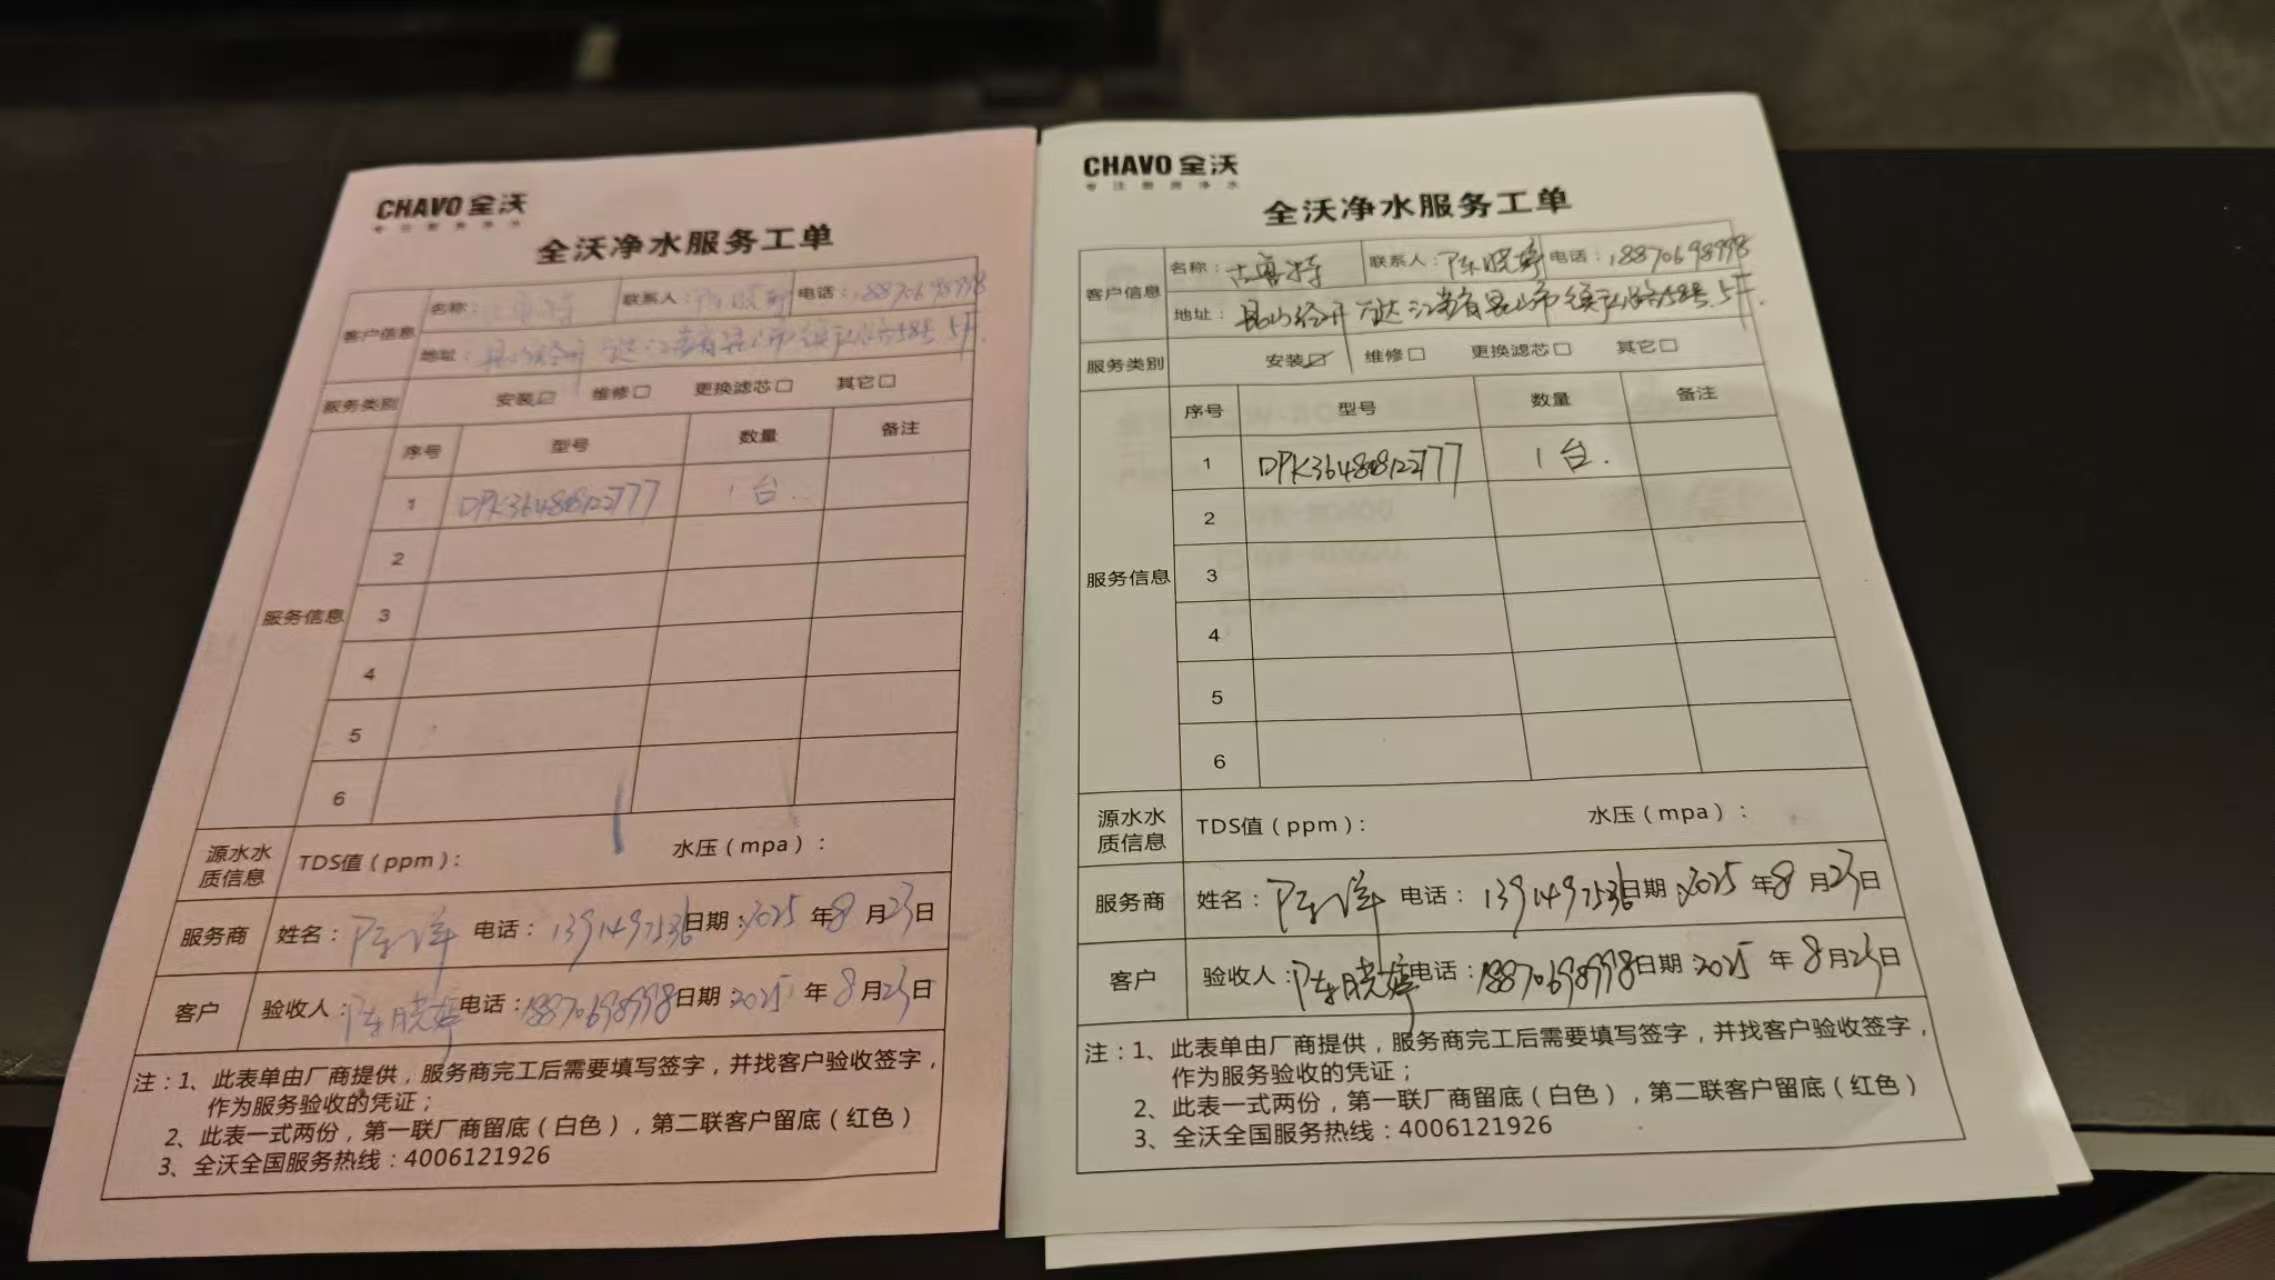 CHAVO 全沃
专注厨房净水
全沃净水服务工单
客户信息
名称：
联系人：陈晓婷
电话：18870698998
地址：昆山经开 江苏省昆山市 路58号 5F.
服务类别
安装☑ 维修□ 更换滤芯□ 其它□
服务信息
序号 型号 数量 备注
1 1台.
2
3
4
5
6
源水水质信息
TDS值（ppm）： 水压（mpa）：
服务商 姓名：陈洋 电话：1391497536 日期：2025 年8 月23日
客户 验收人：陈晓婷 电话：18870698998 日期：2025 年 8月23日
注：1、此表单由厂商提供，服务商完工后需要填写签字，并找客户验收签字，
作为服务验收的凭证；
2、此表一式两份，第一联厂商留底（白色），第二联客户留底（红色）
3、全沃全国服务热线：4006121926
CHAVO 全沃
专注厨房净水
全沃净水服务工单
客户信息
名称：古鲁特
联系人：陈晓婷
电话：18870698998
地址：昆山经开 万达 江苏省昆山市 路58号 5F.
服务类别
安装☑ 维修□ 更换滤芯□ 其它□
服务信息
序号 型号 数量 备注
1 1台.
2
3
4
5
6
源水水质信息
TDS值（ppm）： 水压（mpa）：
服务商 姓名：陈洋 电话：1391497536 日期：2025 年8 月23日
客户 验收人：陈晓婷 电话：18870698998 日期：2025 年 8月23日
注：1、此表单由厂商提供，服务商完工后需要填写签字，并找客户验收签字，
作为服务验收的凭证；
2、此表一式两份，第一联厂商留底（白色），第二联客户留底（红色）
3、全沃全国服务热线：4006121926